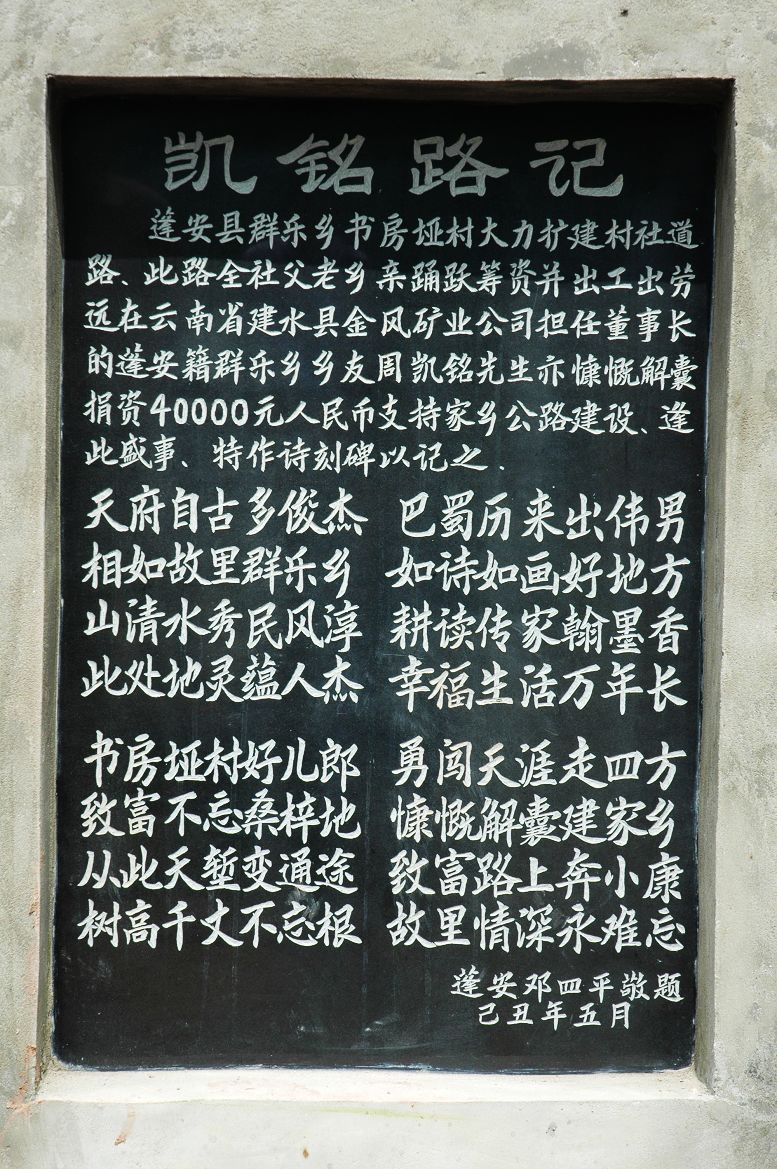 凯铭路记
蓬安县群乐乡书房垭村大力扩建村社道
路、此路全社父老乡亲踊跃筹资并出工出劳
远在云南省建水县金风矿业公司担任董事长
的蓬安籍群乐乡乡友周凯铭先生亦慷慨解囊
捐资40000元人民币支持家乡公路建设、逢
此盛事、特作诗刻碑以记之.
天府自古多俊杰 巴蜀历来出伟男
相如故里群乐乡 如诗如画好地方
山清水秀民风淳 耕读传家翰墨香
此处地灵蕴人杰 幸福生活万年长
书房垭村好儿郎 勇闯天涯走四方
致富不忘桑梓地 慷慨解囊建家乡
从此天堑变通途 致富路上奔小康
树高千丈不忘根 故里情深永难忘
蓬安邓四平敬题
己丑年五月